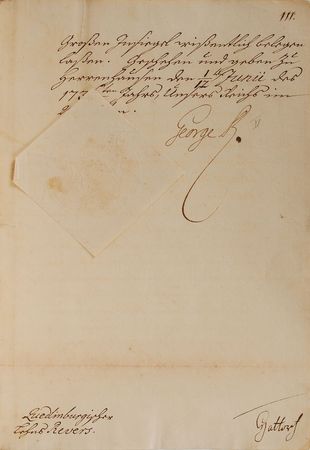 111.
Großen Insiegel wißentlich belegen
laßen. Geschehen und geben zu
Herrenhausen den Junii des
Jahrs, Unsers Reichs im
George R.
Quedlinburgischer
Lehns Revers.